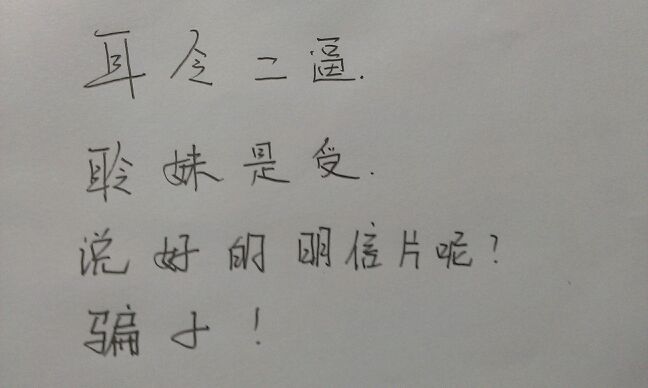 耳令二逼.
聆妹是受.
说好的明信片呢?
骗子!